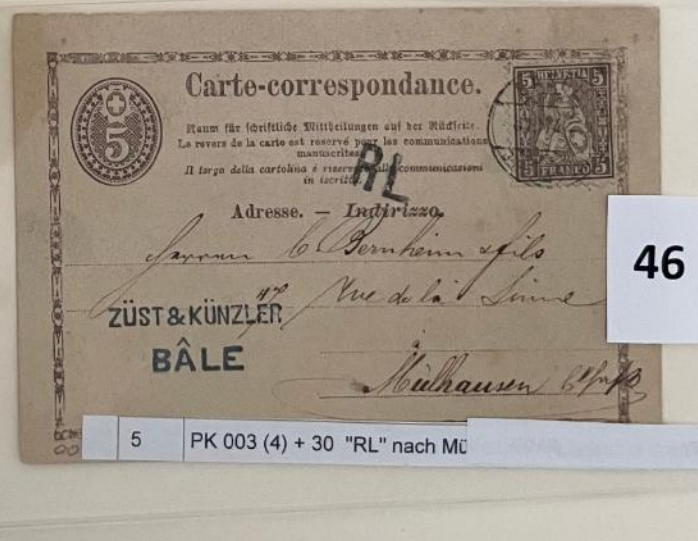 Carte-correspondance.
5
Raum für schriftliche Mittheilungen auf der Rückseite.
Le revers de la carte est reservé pour les communications
manuscrites.
Il tergo della cartolina è riservato alle communicazioni
in iscritto.
RL
5 HELVETIA 5
5 FRANCO 5
Adresse. — Indirizzo.
Herren C Bernheim & fils
Rue de la Sinne
ZÜST & KÜNZLER
BÂLE
à
Mülhausen
46
5 PK 003 (4) + 30 "RL" nach Mü